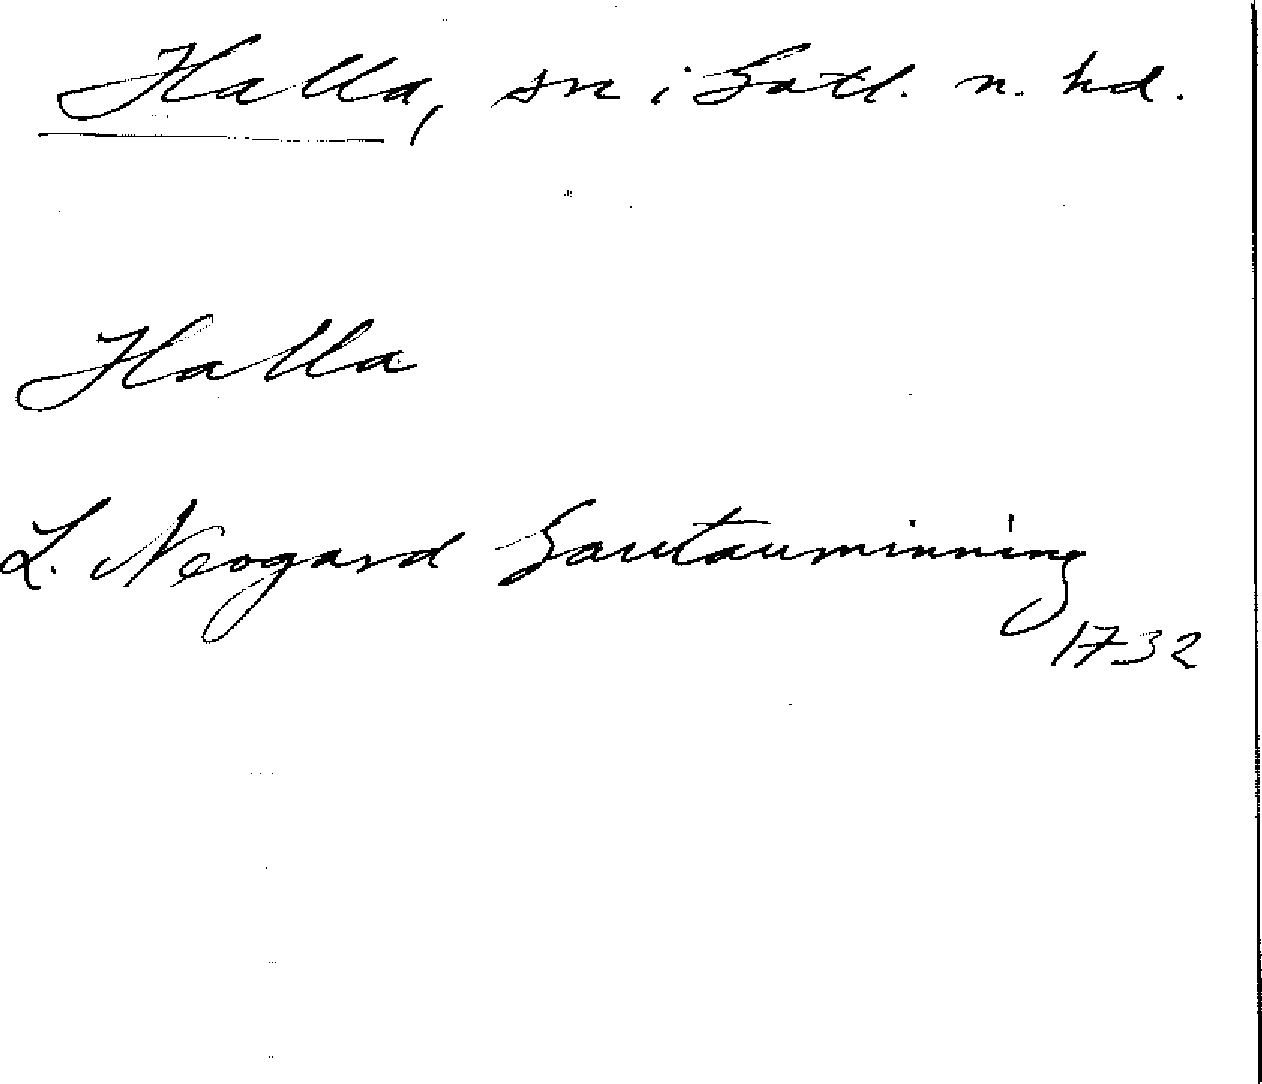 Halla, sn i Gotl. n. hd.
Halla
L. Neogard Gautauminning
1732